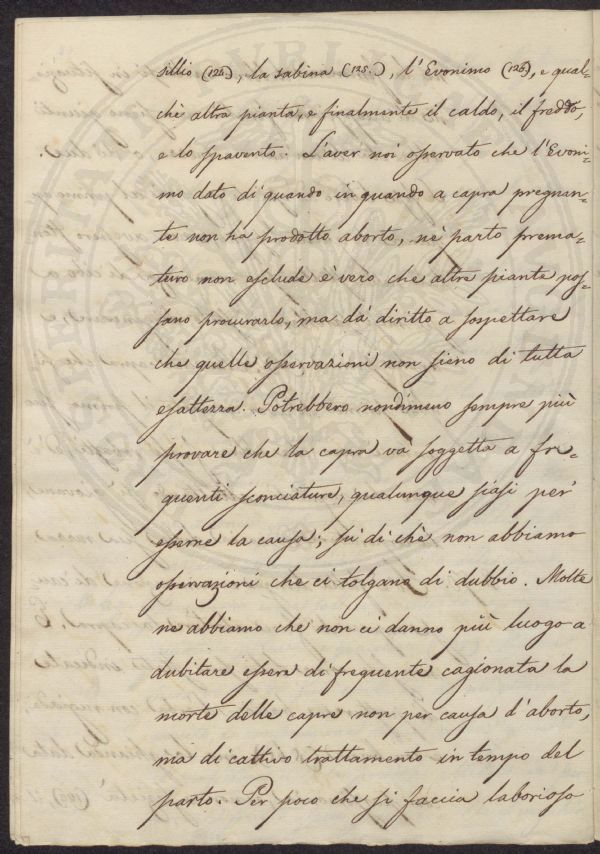 sillio (124), la sabina (125.), l'Evonimo (126), e qual-
chè altra pianta, e finalmente il caldo, il freddo,
e lo spavento. L'aver noi osservato che l'Evoni-
mo dato di quando in quando a capra pregnan-
te non ha prodotto aborto, nè parto prema-
turo non esclude è vero che altre piante pos-
sano procurarlo, ma dà diritto a sospettare
che quelle osservazioni non sieno di tutta
esattezza. Potrebbero nondimeno sempre più
provare che la capra và soggetta a fre-
quenti sconciature, qualunque siasi per
esserne la causa; sù di chè non abbiamo
osservazioni che ci tolgano di dubbio. Molte
ne abbiamo che non ci danno più luogo a
dubitare essere di frequente cagionata la
morte delle capre non per causa d'aborto,
ma di cattivo trattamento in tempo del
parto. Per poco che si faccia laborioso